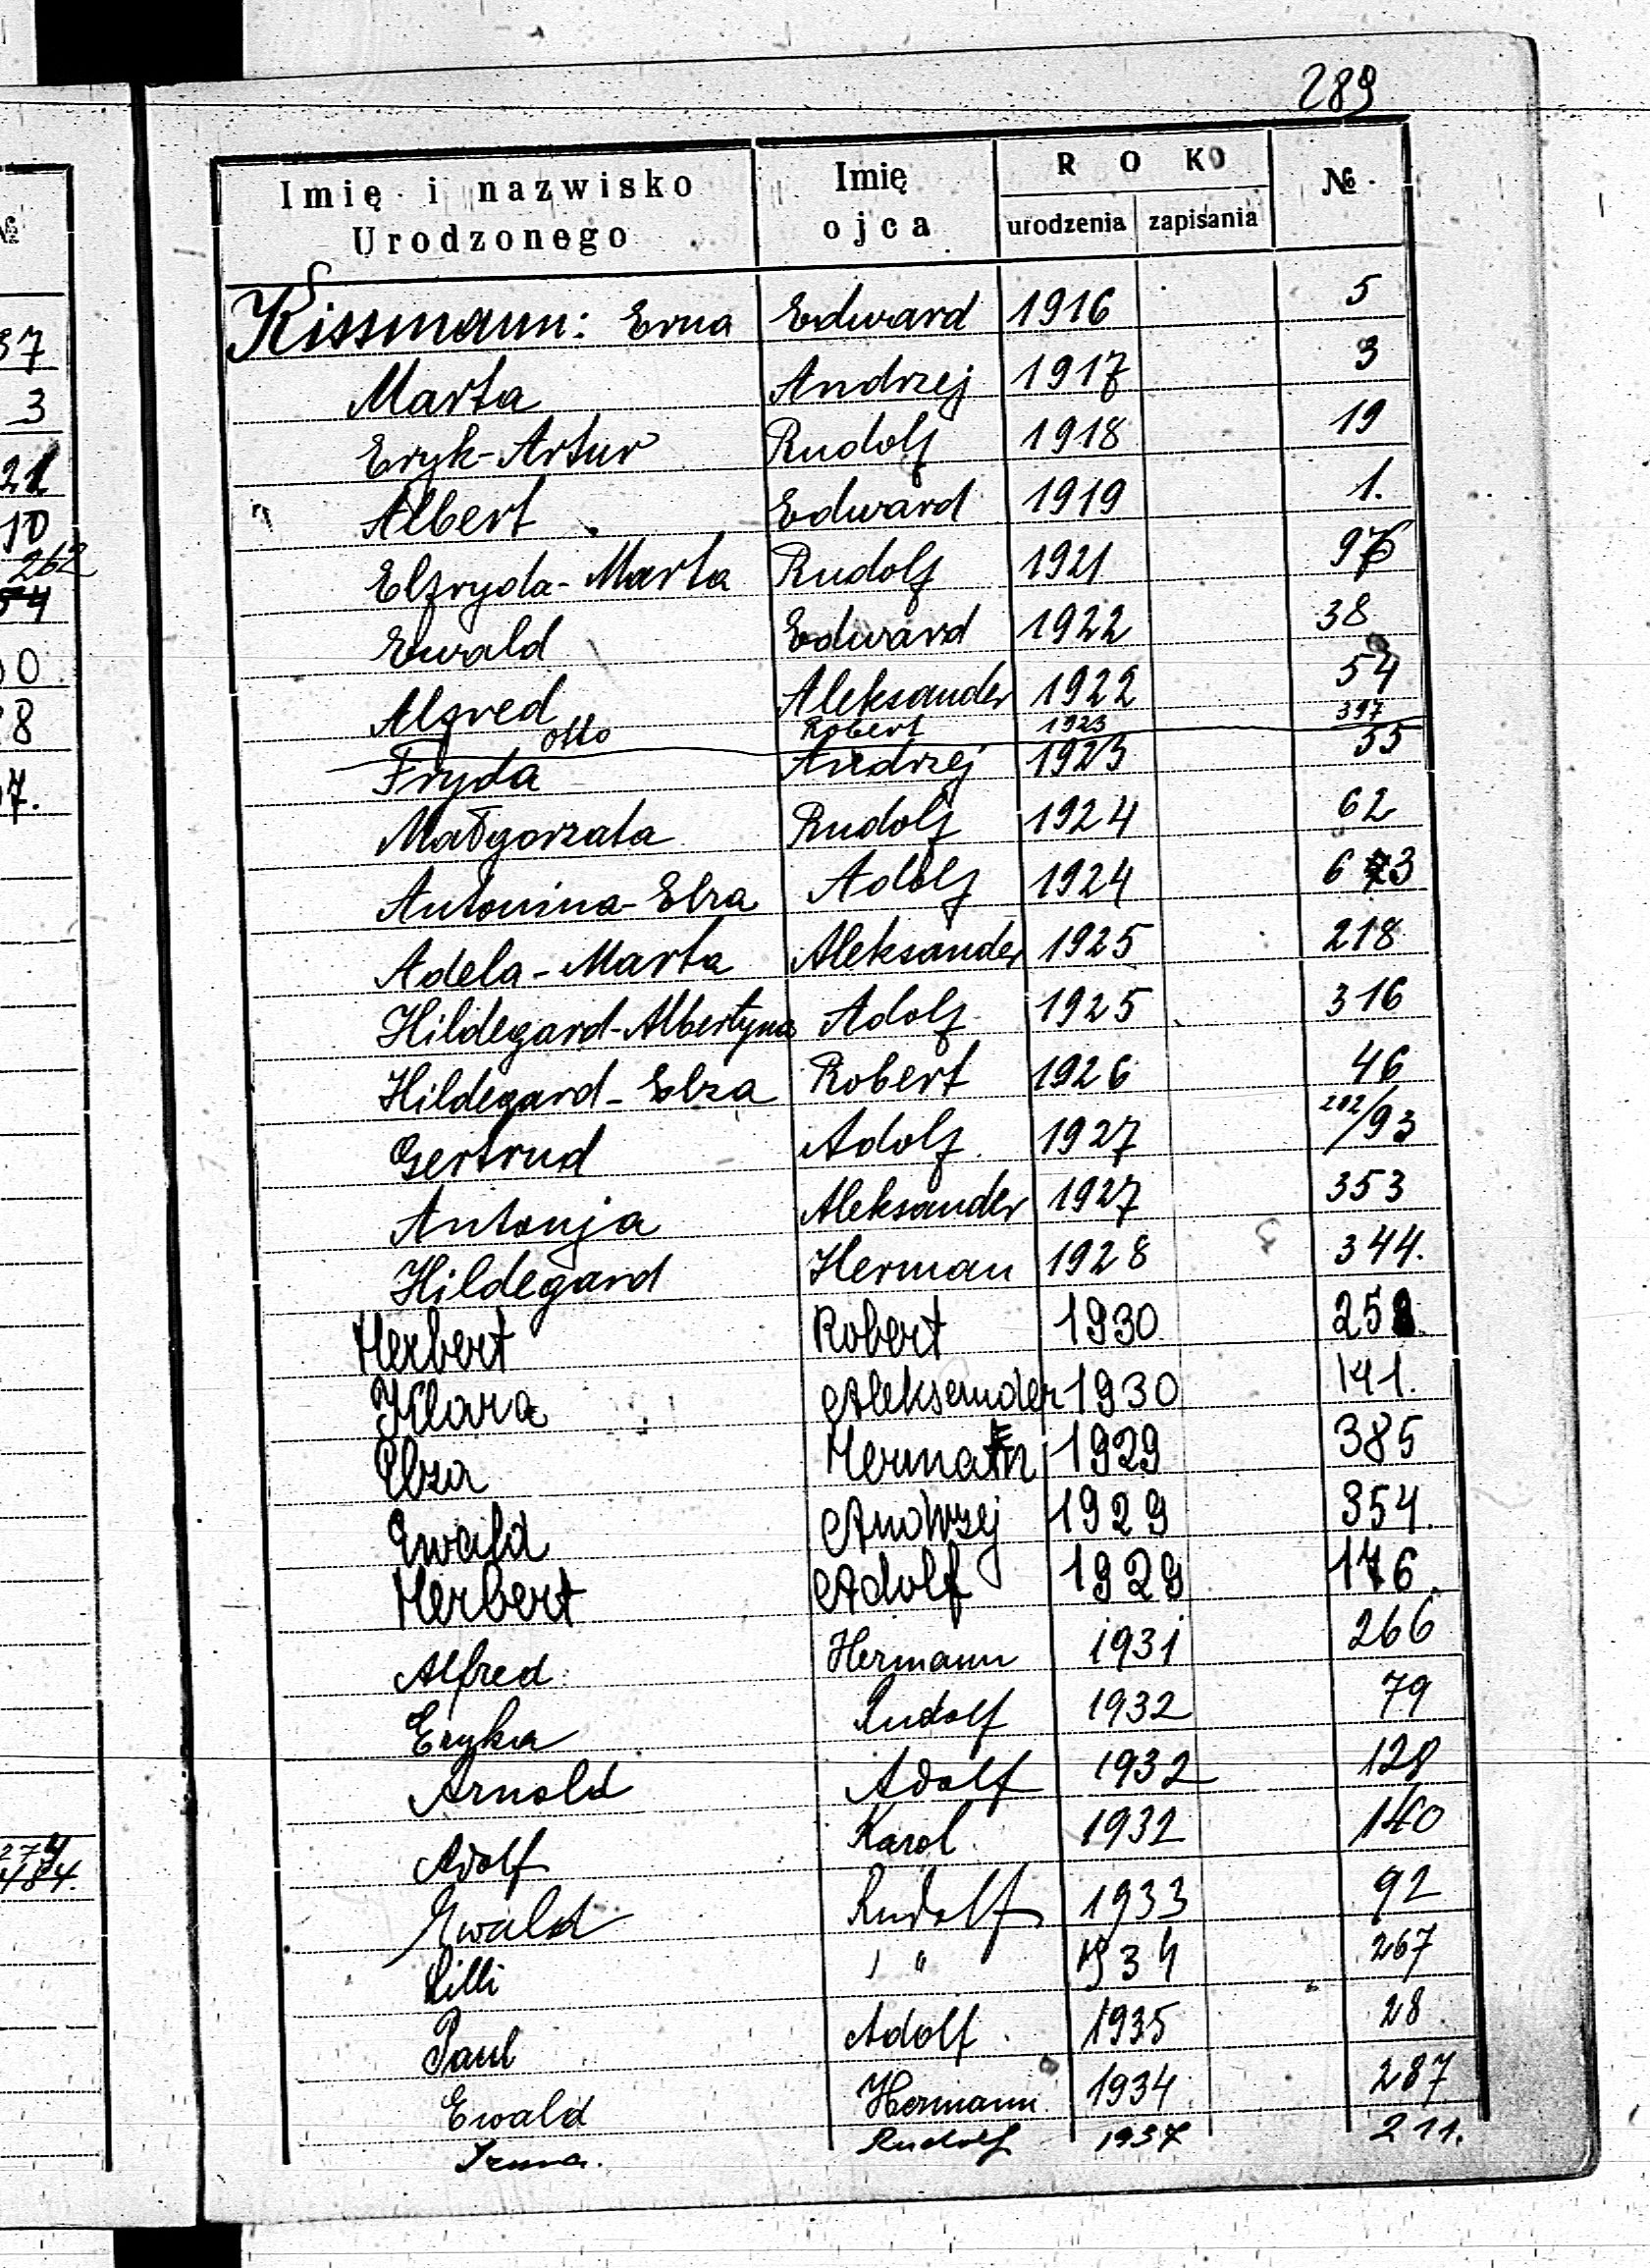 289
Imię i nazwisko Urodzonego Imię ojca ROK urodzenia zapisania №
Kissmann: Erna Edward 1916 5
Marta Andrzej 1917 3
Eryk-Artur Rudolf 1918 19
Albert Edward 1919 1.
Elfryda-Marta Rudolf 1921
Ewald Edward 1922 38
Alfred Aleksander 1922 54
Otto Robert 1923 397
Fryda Andrzej 1923 55
Małgorzata Rudolf 1924 62
Antonina-Elza Adolf 1924
Adela-Marta Aleksander 1925 218
Hildegard-Albertyna Adolf 1925 316
Hildegard-Elza Robert 1926 46
Gertrud Adolf 1927 202/93
Antonja Aleksander 1927 353
Hildegard Herman 1928 344.
Herbert Robert 1930
Klara Aleksander 1930 141.
Elza Herman 1929 385
Ewald Andrzej 1929 354.
Herbert Adolf 1929 176.
Alfred Hermann 1931 266
Eryka Rudolf 1932 79
Arnold Adolf 1932 128
Adolf Karol 1932 140
Ewald Rudolf 1933 92
Lilli " 1934 267
Paul Adolf 1935 28
Ewald Hermann 1934 287
Irma. Rudolf 1937 211.
№
37
3
21
10
262
54
0
8
7.
274
484.